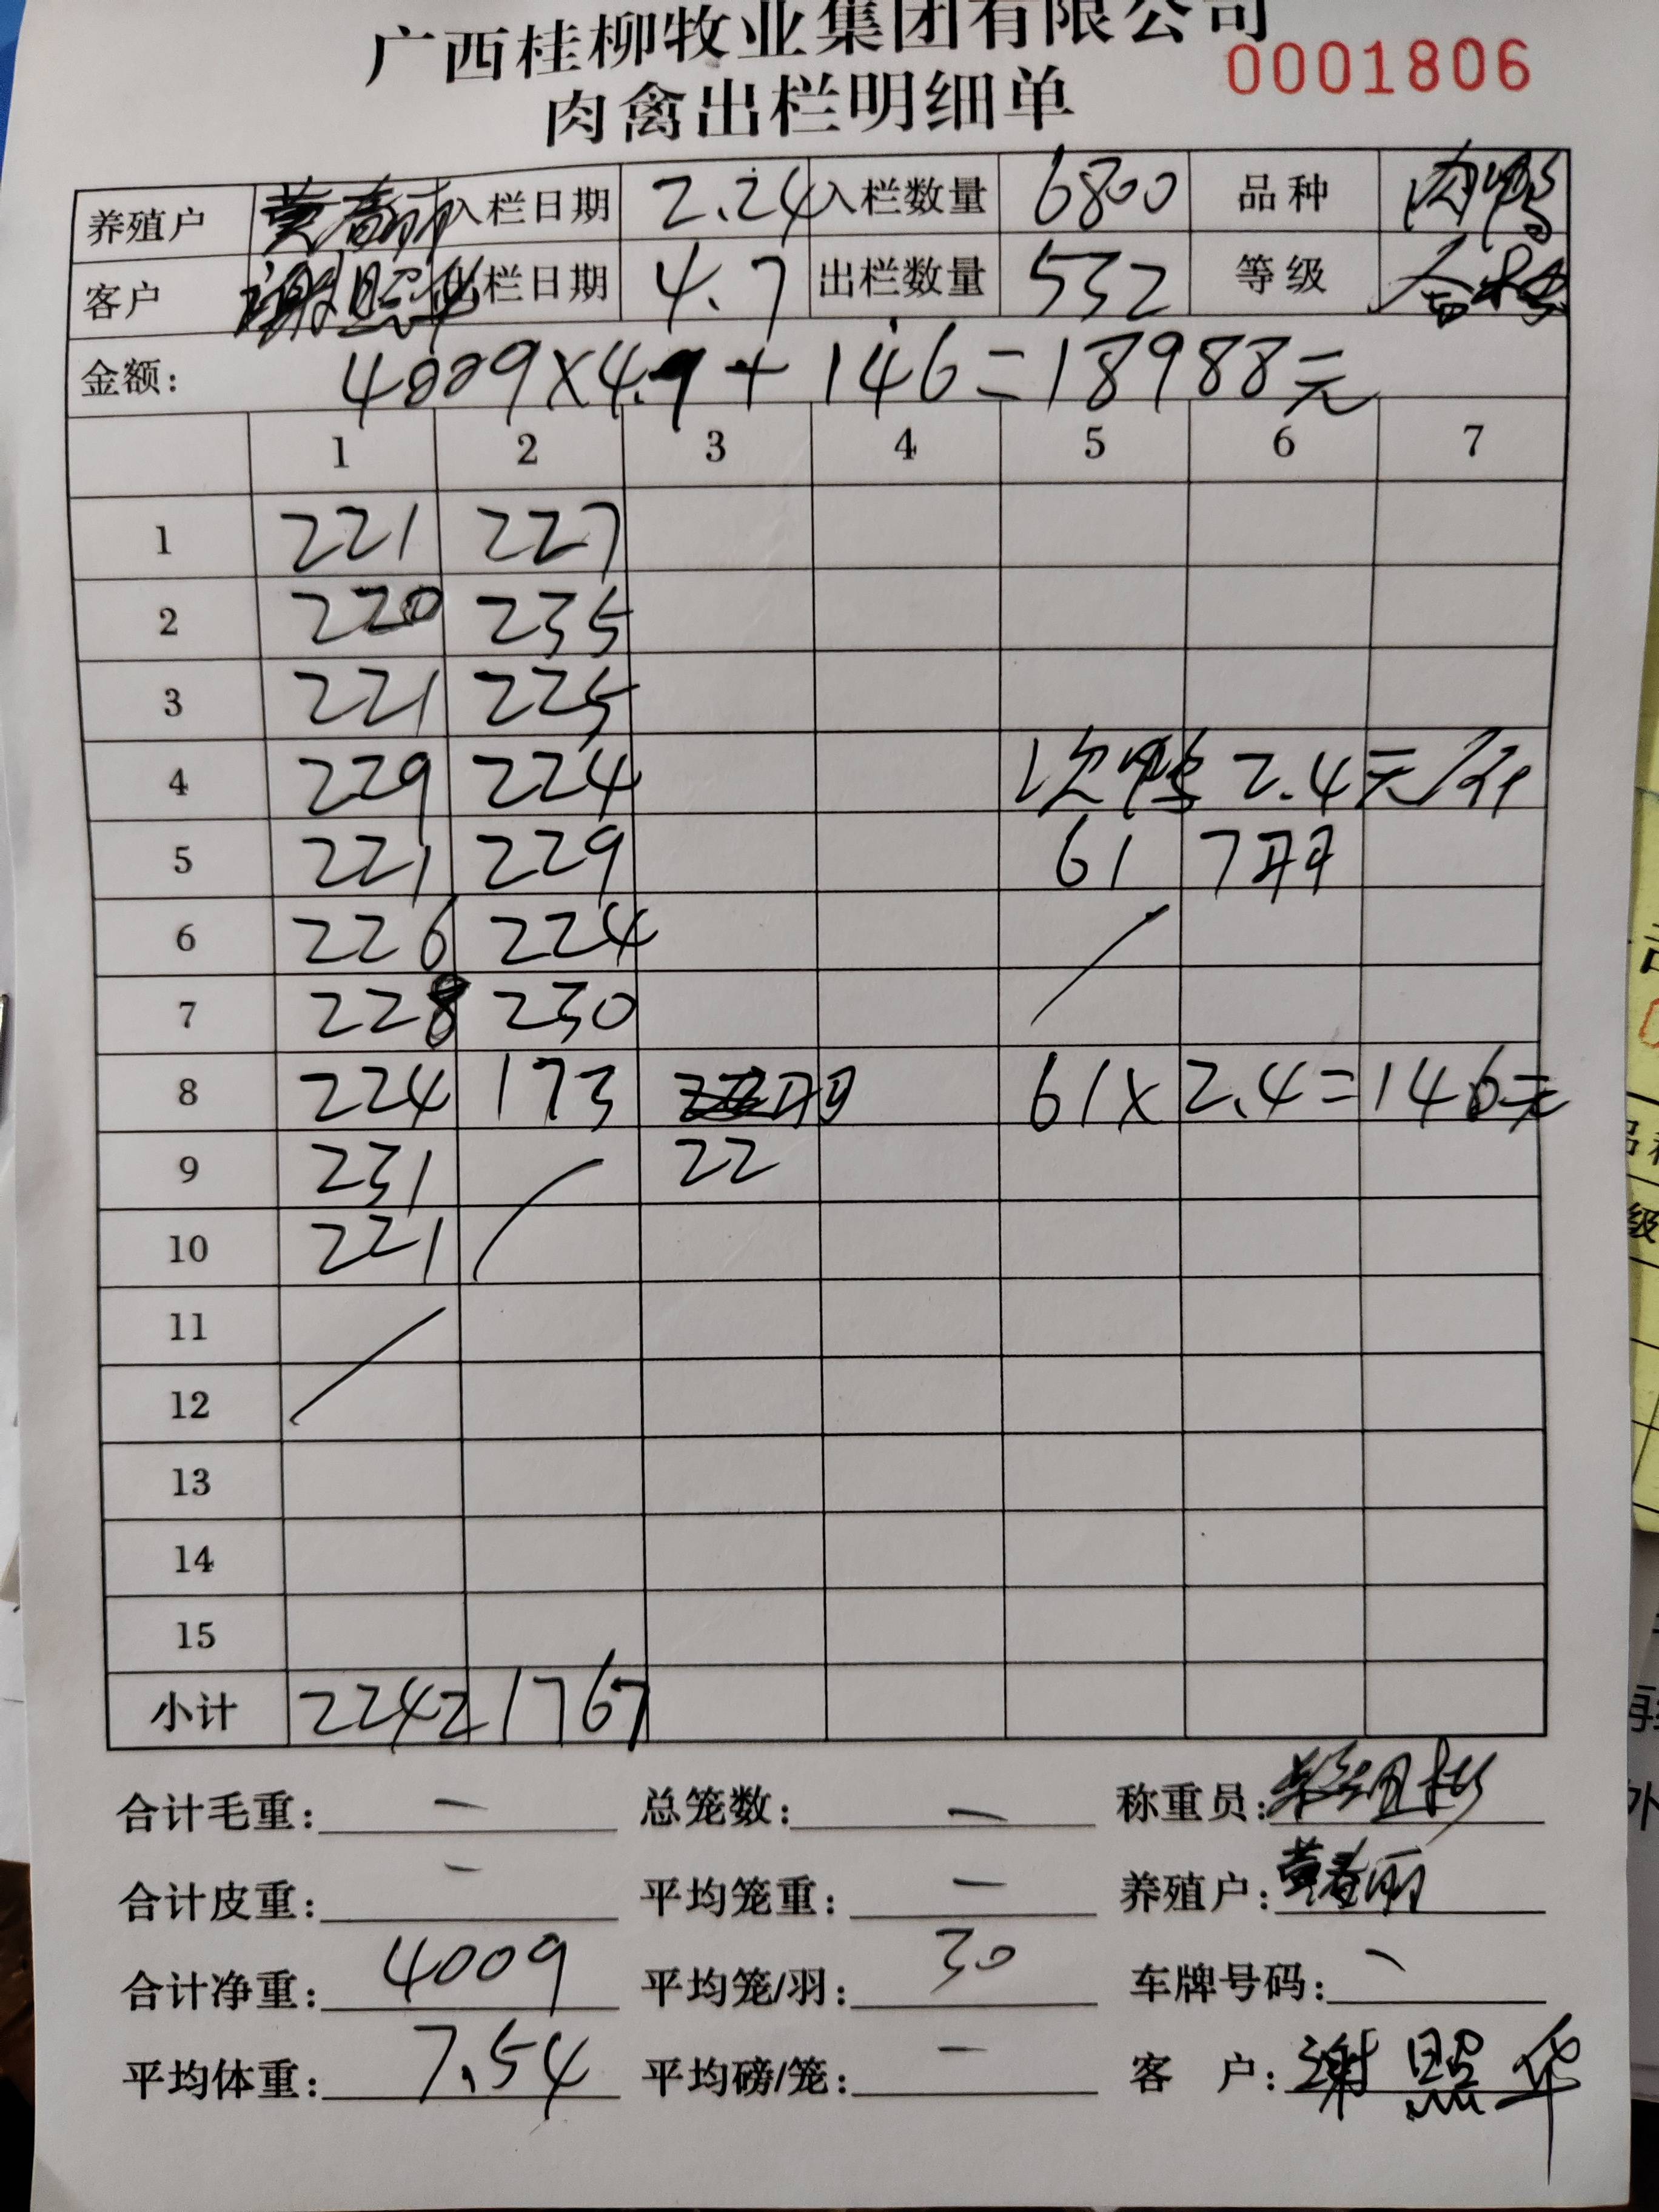 广西桂柳牧业集团有限公司
0001806
肉禽出栏明细单
养殖户 黄春丽 入栏日期 2.24 入栏数量 6800 品种 肉鸭
客户 谢照华 出栏日期 4.7 出栏数量 532 等级 合格
金额: 4009×4.7+146=18988元
1 2 3 4 5 6 7
1 221 227
2 220 235
3 221 225
4 229 224 次鸭 2.4元/斤
5 221 229 61 7羽
6 226 224
7 228 230
8 224 173 羽 61×2.4=146元
9 231 22
10 221
11
12
13
14
15
小计 2242 1767
合计毛重: — 总笼数: — 称重员:
合计皮重: — 平均笼重: — 养殖户: 黄春丽
合计净重: 4009 平均笼/羽: 30 车牌号码:
平均体重: 7.54 平均磅/笼: — 客 户: 谢照华